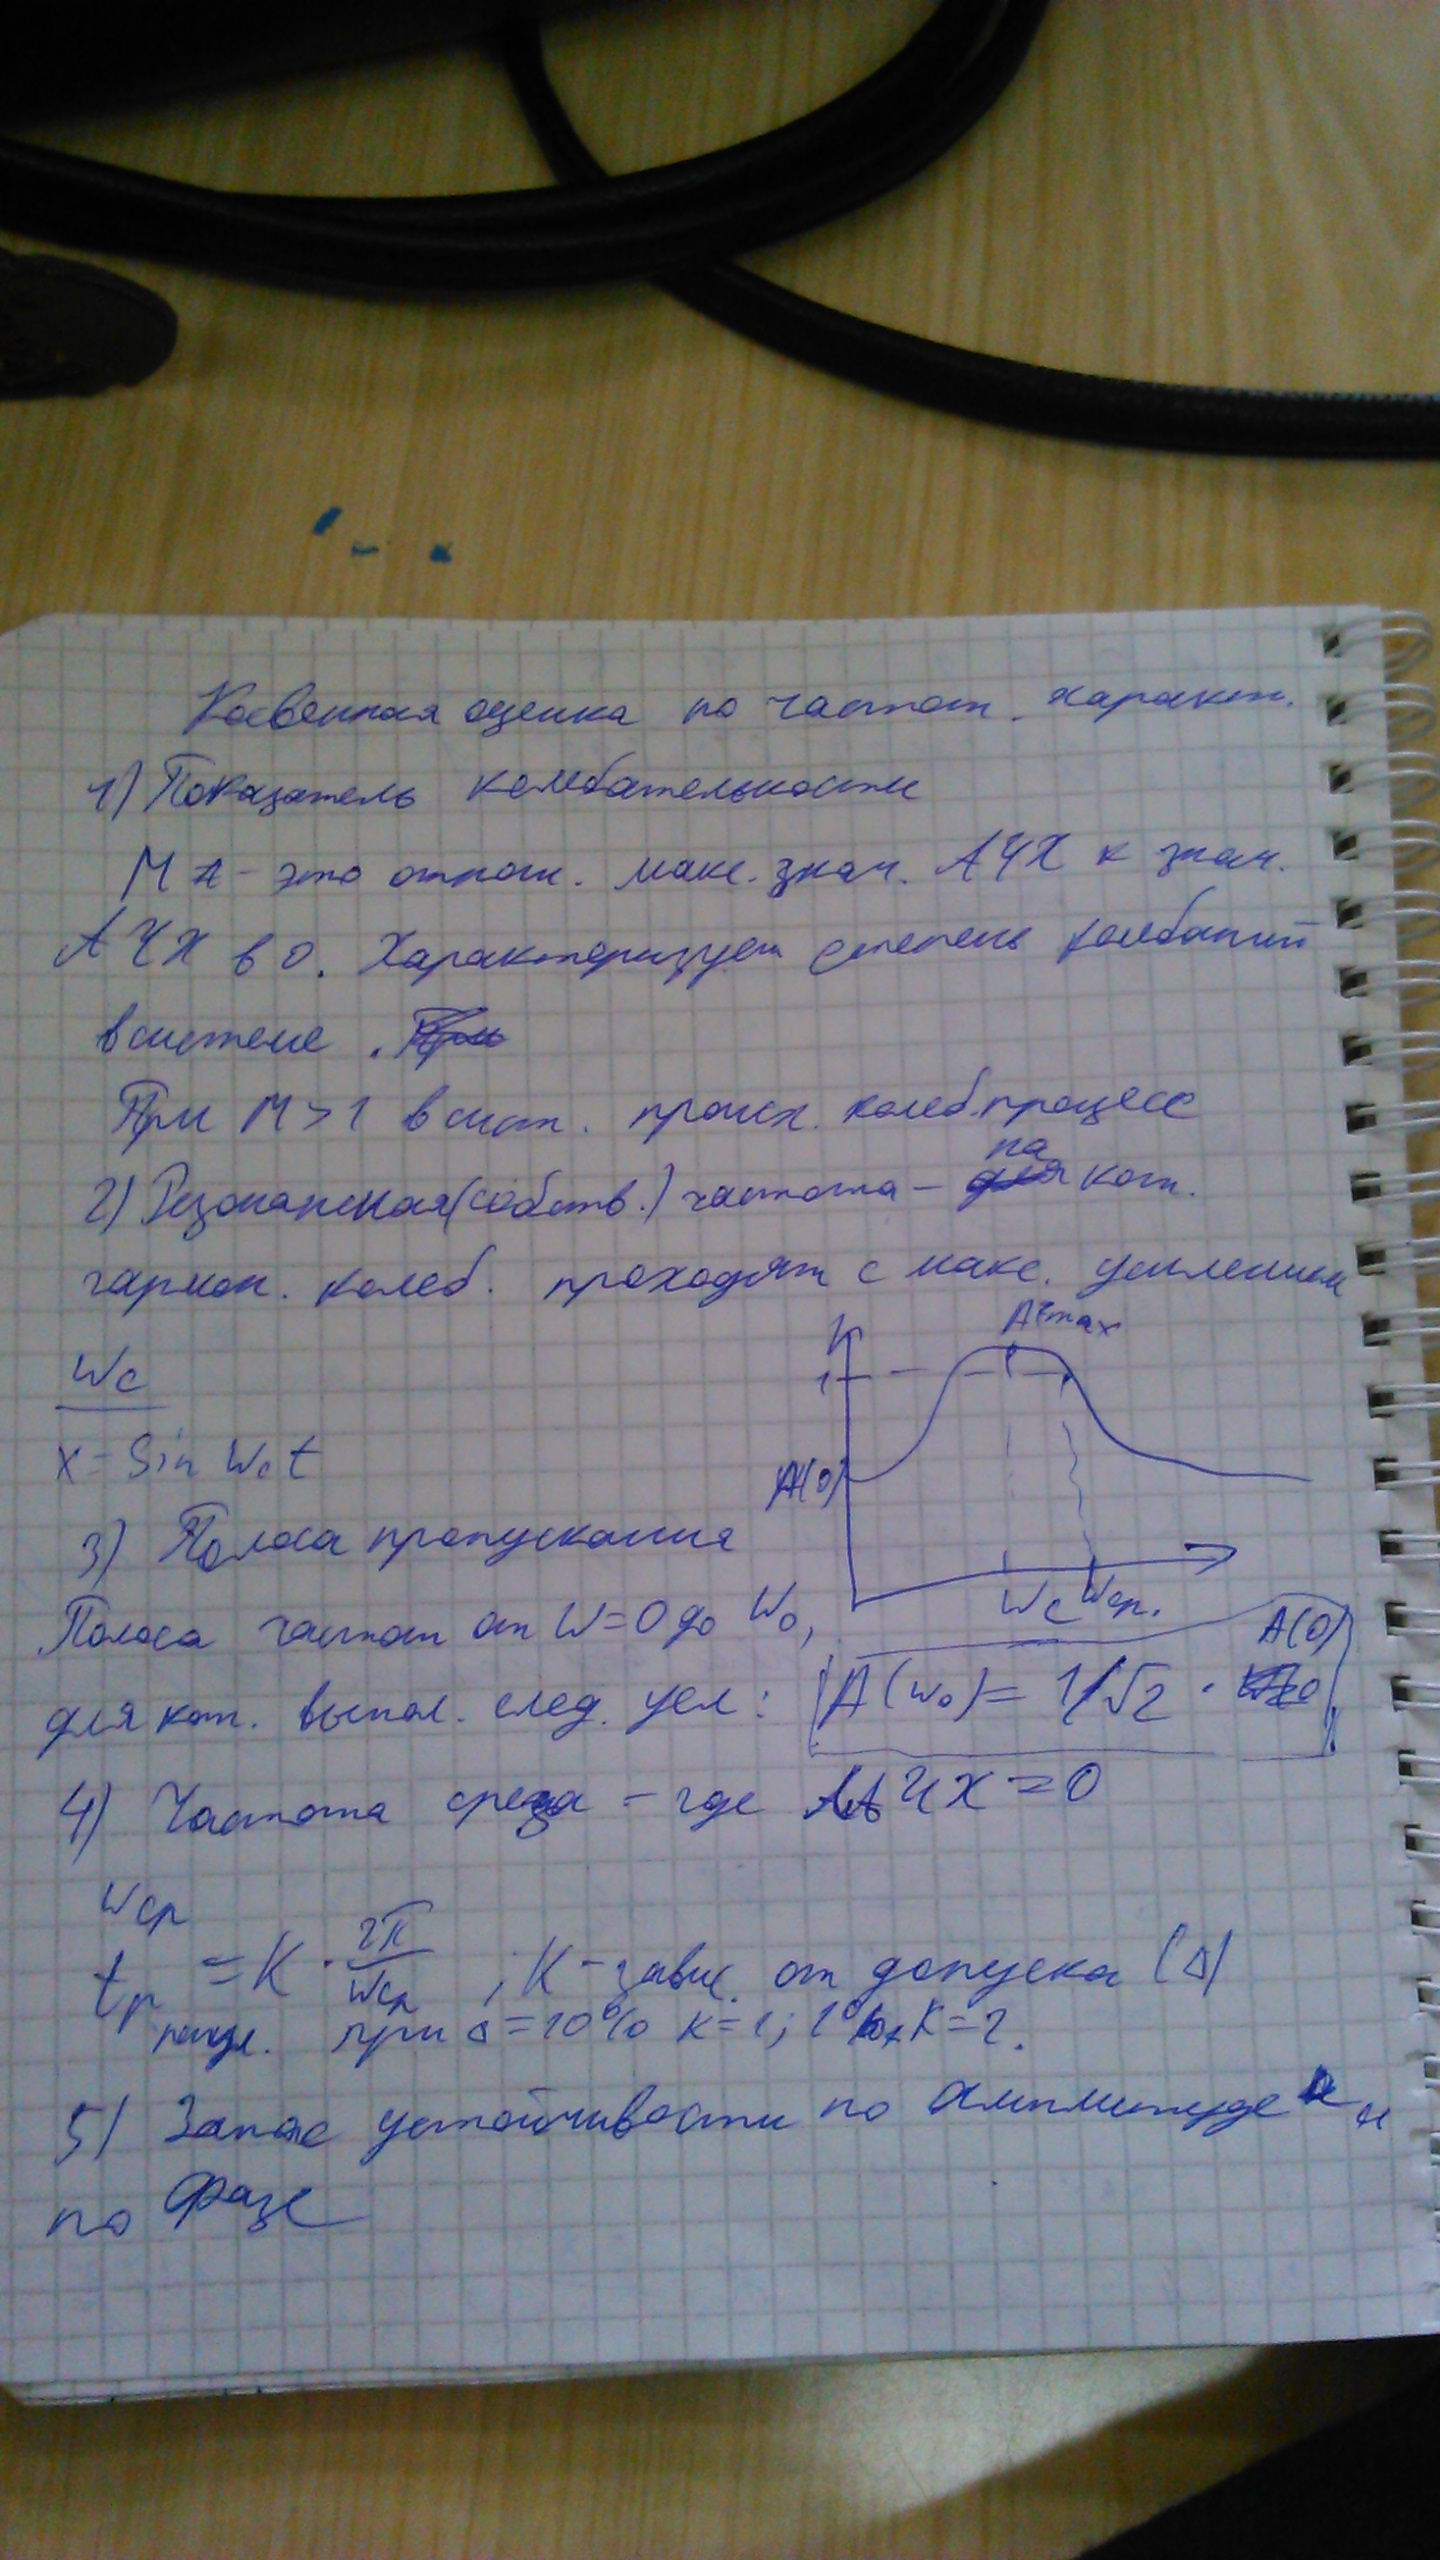 Косвенная оценка по частот. характ.
1) Показатель колебательности
М - это отнош. макс. знач. АЧХ к знач.
АЧХ в 0. Характеризует степень колебаний
в системе.
При М>1 в сист. происх. колеб. процесс
2) Резонансная (собств.) частота - на кот.
гармон. колеб. проходят с макс. усилением
Wc
x = Sin Wc t
Amax
1
A(0)
Wc Wср.
3) Полоса пропускания
Полоса частот от W=0 до W₀,
для кот. выпол. след. усл: A(w₀) = 1/√2 · A(0)
4) Частота среза - где ЛАЧХ = 0
Wср
tр = K · 2π/Wср, K - завис. от допуска (Δ)
регул. при Δ = 10% K=1; K=2.
5) Запас устойчивости по амплитуде и
по фазе